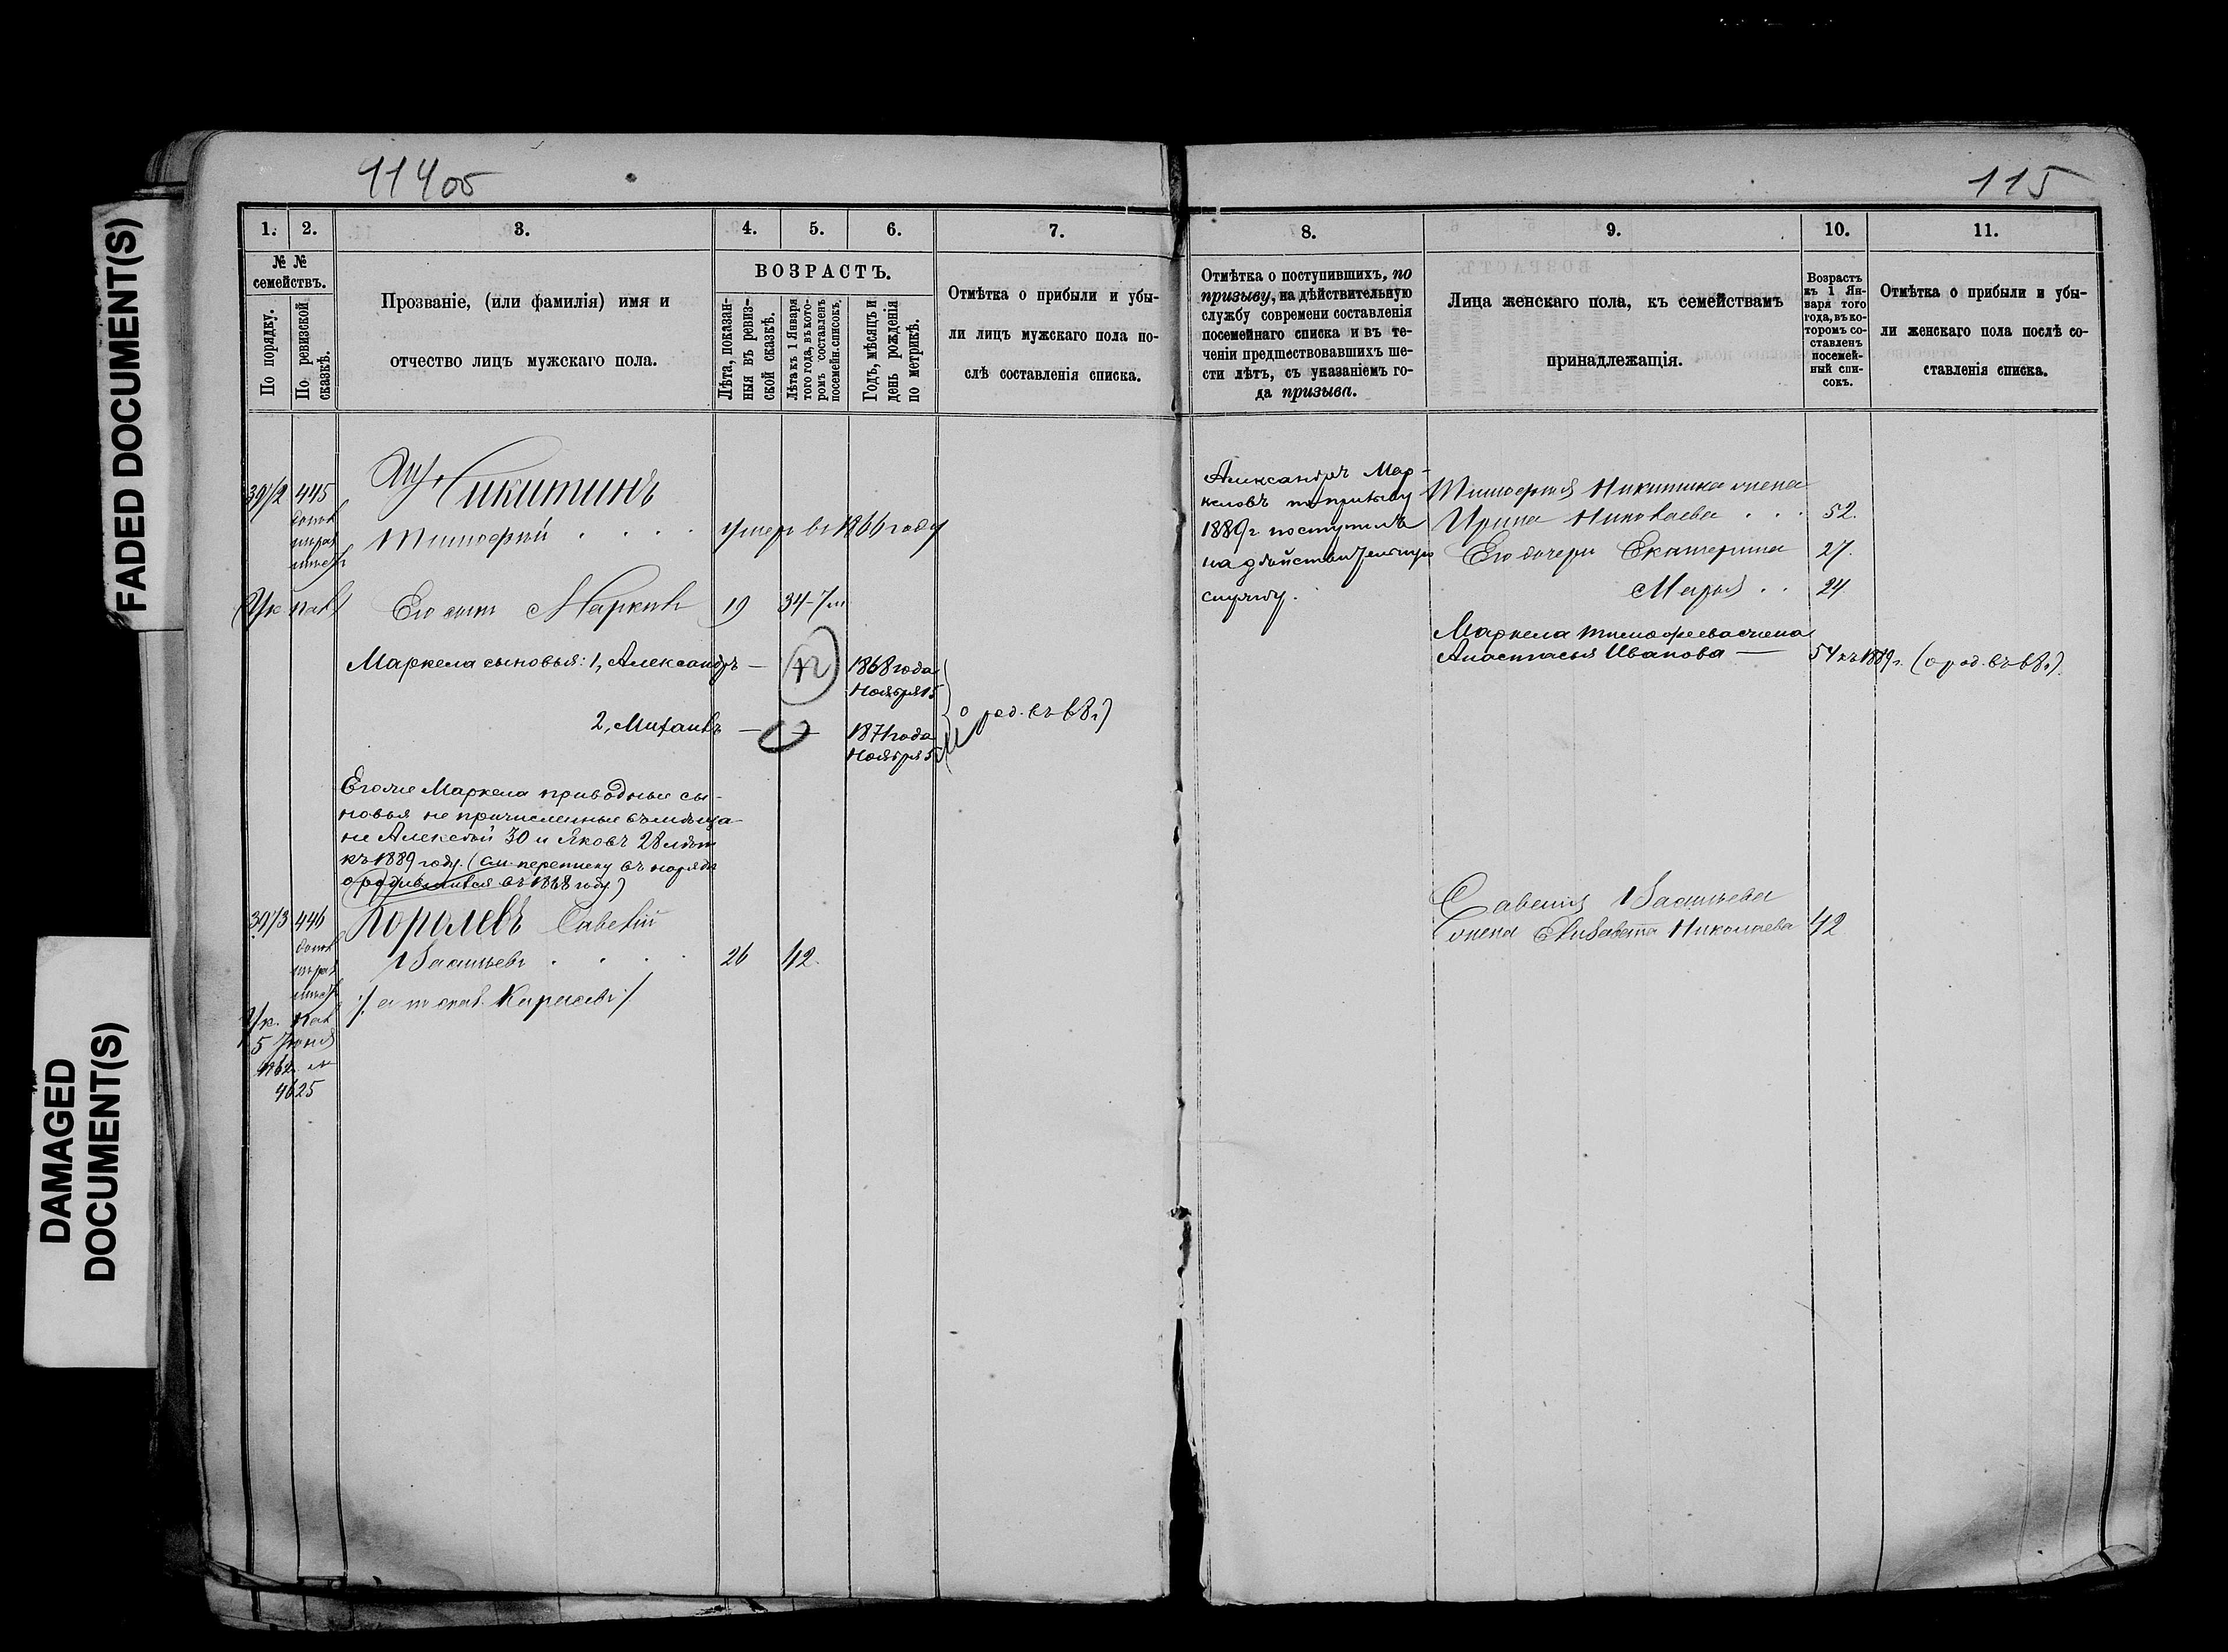 FAITED DOCUMENT(S)
DAMAGED
DOCUMENT(S)
114об
115
1. 2. 3. 4. 5. 6. 7.
№ №
семействъ.
По порядку.
По ревизской
сказкѣ.
Прозваніе, (или фамилія) имя и
отчество лицъ мужскаго пола.
ВОЗРАСТЪ.
Лѣта, показан-
ныя въ ревиз-
ской сказкѣ.
Лѣта къ 1 Января
того года, въ кото-
ромъ составленъ
посемейн. списокъ.
Годъ, мѣсяцъ и
день рожденія
по метрикѣ.
Отмѣтка о прибыли и убы-
ли лицъ мужскаго пола по-
слѣ составленія списка.
397/2 445
Никитинъ
Тимофей умеръ въ 1866 году
Его сынъ Маркелъ 19 34-7м
Маркела сыновья: 1, Александръ — 1868 года
Ноября 15
2, Михаилъ — 1871 года
Ноября 5
Его же Маркела приводные сы-
новья не причисленные въ мѣща-
не Алексѣй 30 и Яковъ 28 лѣтъ
къ 1889 году. (см. переписку въ нарядѣ
о родившихся въ 1868 году)
397/3 446
Королевъ Савелій
Васильевъ 26 42.
5 Іюня
4625
8. 9. 10. 11.
Отмѣтка о поступившихъ, по
призыву, на дѣйствительную
службу современи составленія
посемейнаго списка и въ те-
ченіи предшествовавшихъ ше-
сти лѣтъ, съ указаніемъ го-
да призыва.
Лица женскаго пола, къ семействамъ
принадлежащія.
Возрастъ
къ 1 Ян-
варя того
года, въ ко-
торомъ со-
ставленъ
посемей-
ный спи-
сокъ.
Отмѣтка о прибыли и убы-
ли женскаго пола послѣ со-
ставленія списка.
Александръ Мар-
келовъ по призыву
1889 г. поступилъ
на дѣйствительную
службу.
Тимофея Никитина жена
Ирина Николаева 52.
Его дочери Екатерина 27.
Марья 24
Маркела Тимофеева жена
Анастасья Иванова — 54 къ 1889 г. (о род. въ 68 г.)
Савелія Васильева
жена Елизавета Николаева 42